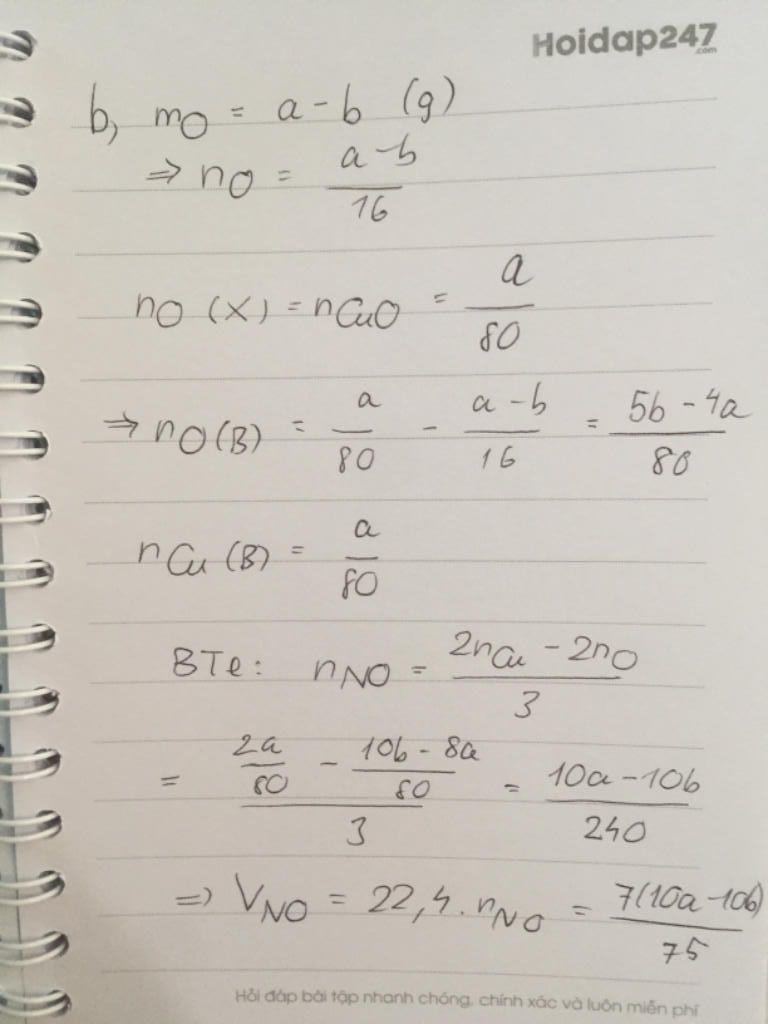 Hoidap247
.com
b, mO = a - b (g)
⇒ nO = (a - b)/16
nO (X) = nCuO = a/80
⇒ nO(B) = a/80 - (a - b)/16 = (5b - 4a)/80
nCu (B) = a/80
BTe: nNO = (2nCu - 2nO)/3
= (2a/80 - (10b - 8a)/80)/3 = (10a - 10b)/240
=> VNO = 22,4. nNO = 7(10a - 10b)/75
Hỏi đáp bài tập nhanh chóng, chính xác và luôn miễn phí